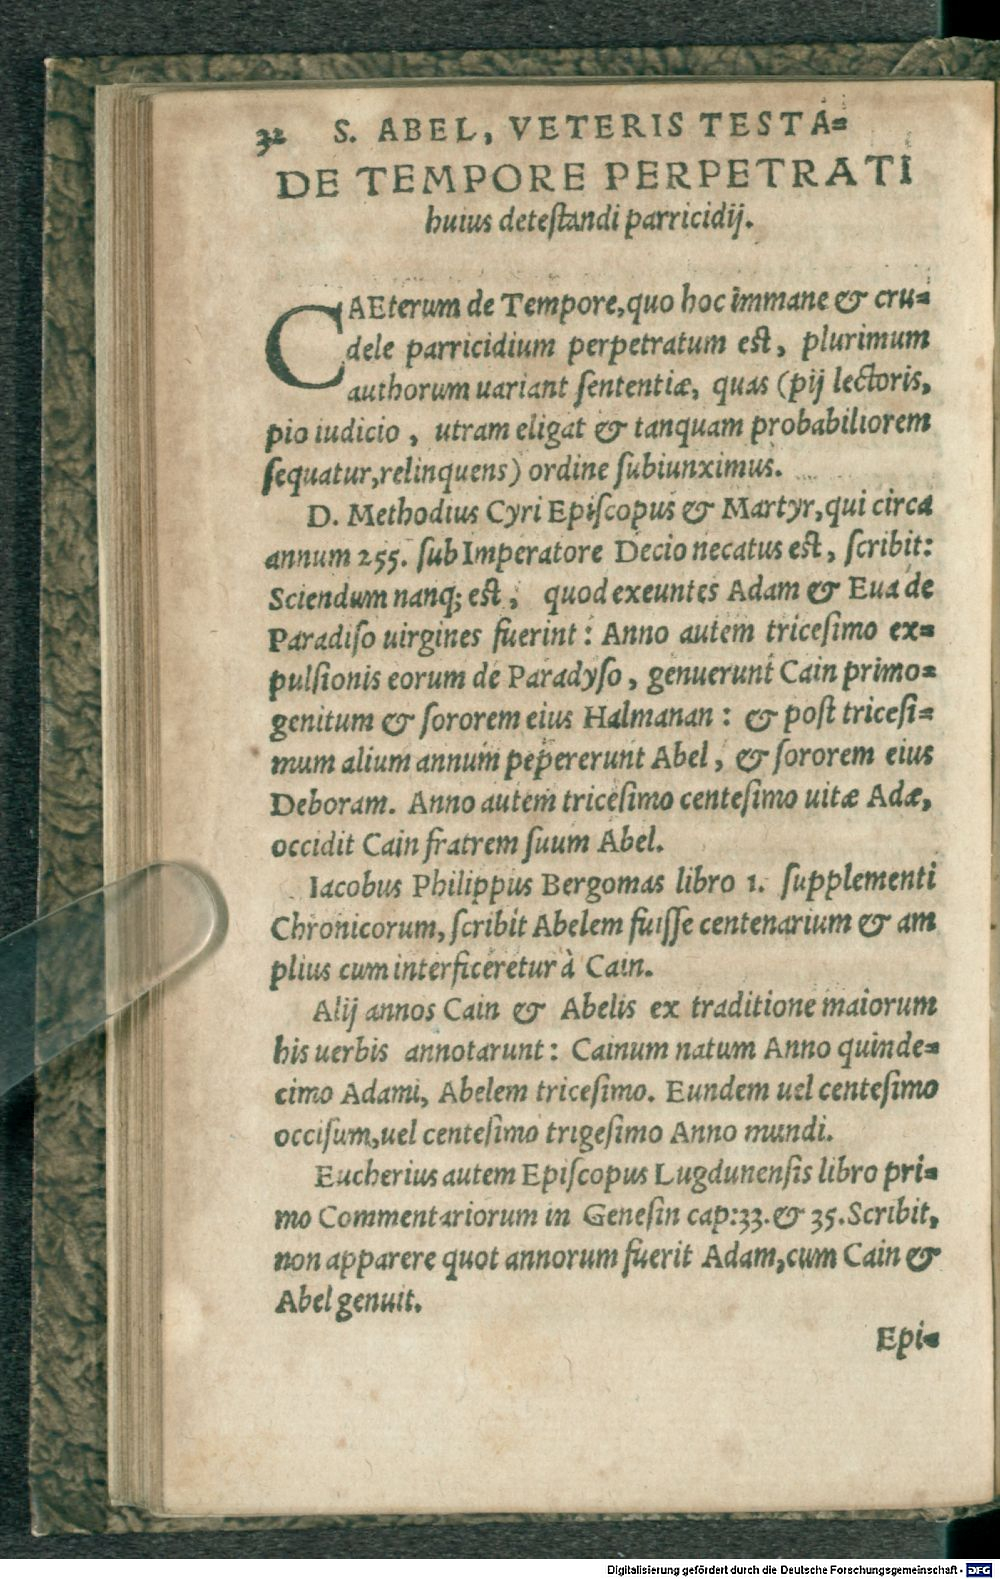 32 S. ABEL, VETERIS TESTA=
DE TEMPORE PERPETRATI
huius deteſtandi parricidij.
CAEterum de Tempore, quo hoc immane & cru=
dele parricidium perpetratum eſt, plurimum
authorum uariant ſententiæ, quas (pij lectoris,
pio iudicio, utram eligat & tanquam probabiliorem
ſequatur, relinquens) ordine ſubiunximus.
D. Methodius Cyri Epiſcopus & Martyr, qui circa
annum 255. ſub Imperatore Decio necatus eſt, ſcribit:
Sciendum nanq; eſt, quod exeuntes Adam & Eua de
Paradiſo uirgines fuerint: Anno autem triceſimo ex=
pulſionis eorum de Paradyſo, genuerunt Cain primo=
genitum & ſororem eius Halmanan: & poſt triceſi=
mum alium annum pepererunt Abel, & ſororem eius
Deboram. Anno autem triceſimo centeſimo uitæ Adæ,
occidit Cain fratrem ſuum Abel.
Iacobus Philippus Bergomas libro 1. ſupplementi
Chronicorum, ſcribit Abelem fuiſſe centenarium & am
plius cum interficeretur à Cain.
Alij annos Cain & Abelis ex traditione maiorum
his uerbis annotarunt: Cainum natum Anno quinde=
cimo Adami, Abelem triceſimo. Eundem uel centeſimo
occiſum, uel centeſimo trigeſimo Anno mundi.
Eucherius autem Epiſcopus Lugdunenſis libro pri=
mo Commentariorum in Geneſin cap: 33. & 35. Scribit,
non apparere quot annorum fuerit Adam, cum Cain &
Abel genuit.
Epi=
Digitalisierung gefördert durch die Deutsche Forschungsgemeinschaft - DFG